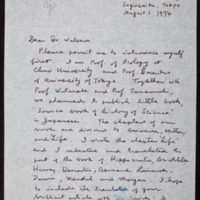 Suginami-ku, Tokyo
August 1, 1974
Dear Dr. Watson
Please permit me to introduce myself
first. I am Prof. of Biology at
Chuo University and Prof. Emeritus
of University of Tokyo. Together with
Prof. and Prof.
we planned to publish little book,
"Source book of history of Science"
in Japanese. The chapters of our
book are divided to Universe, Matter
and Life. I wrote the chapter Life
and I selected and translated the
part of the book of Hippocrates, Aristotle,
Harvey, Descartes, Bernard, Pasteur,
Darwin, Mendel and Morgan. I hope
to include the translation of your
brilliant article with